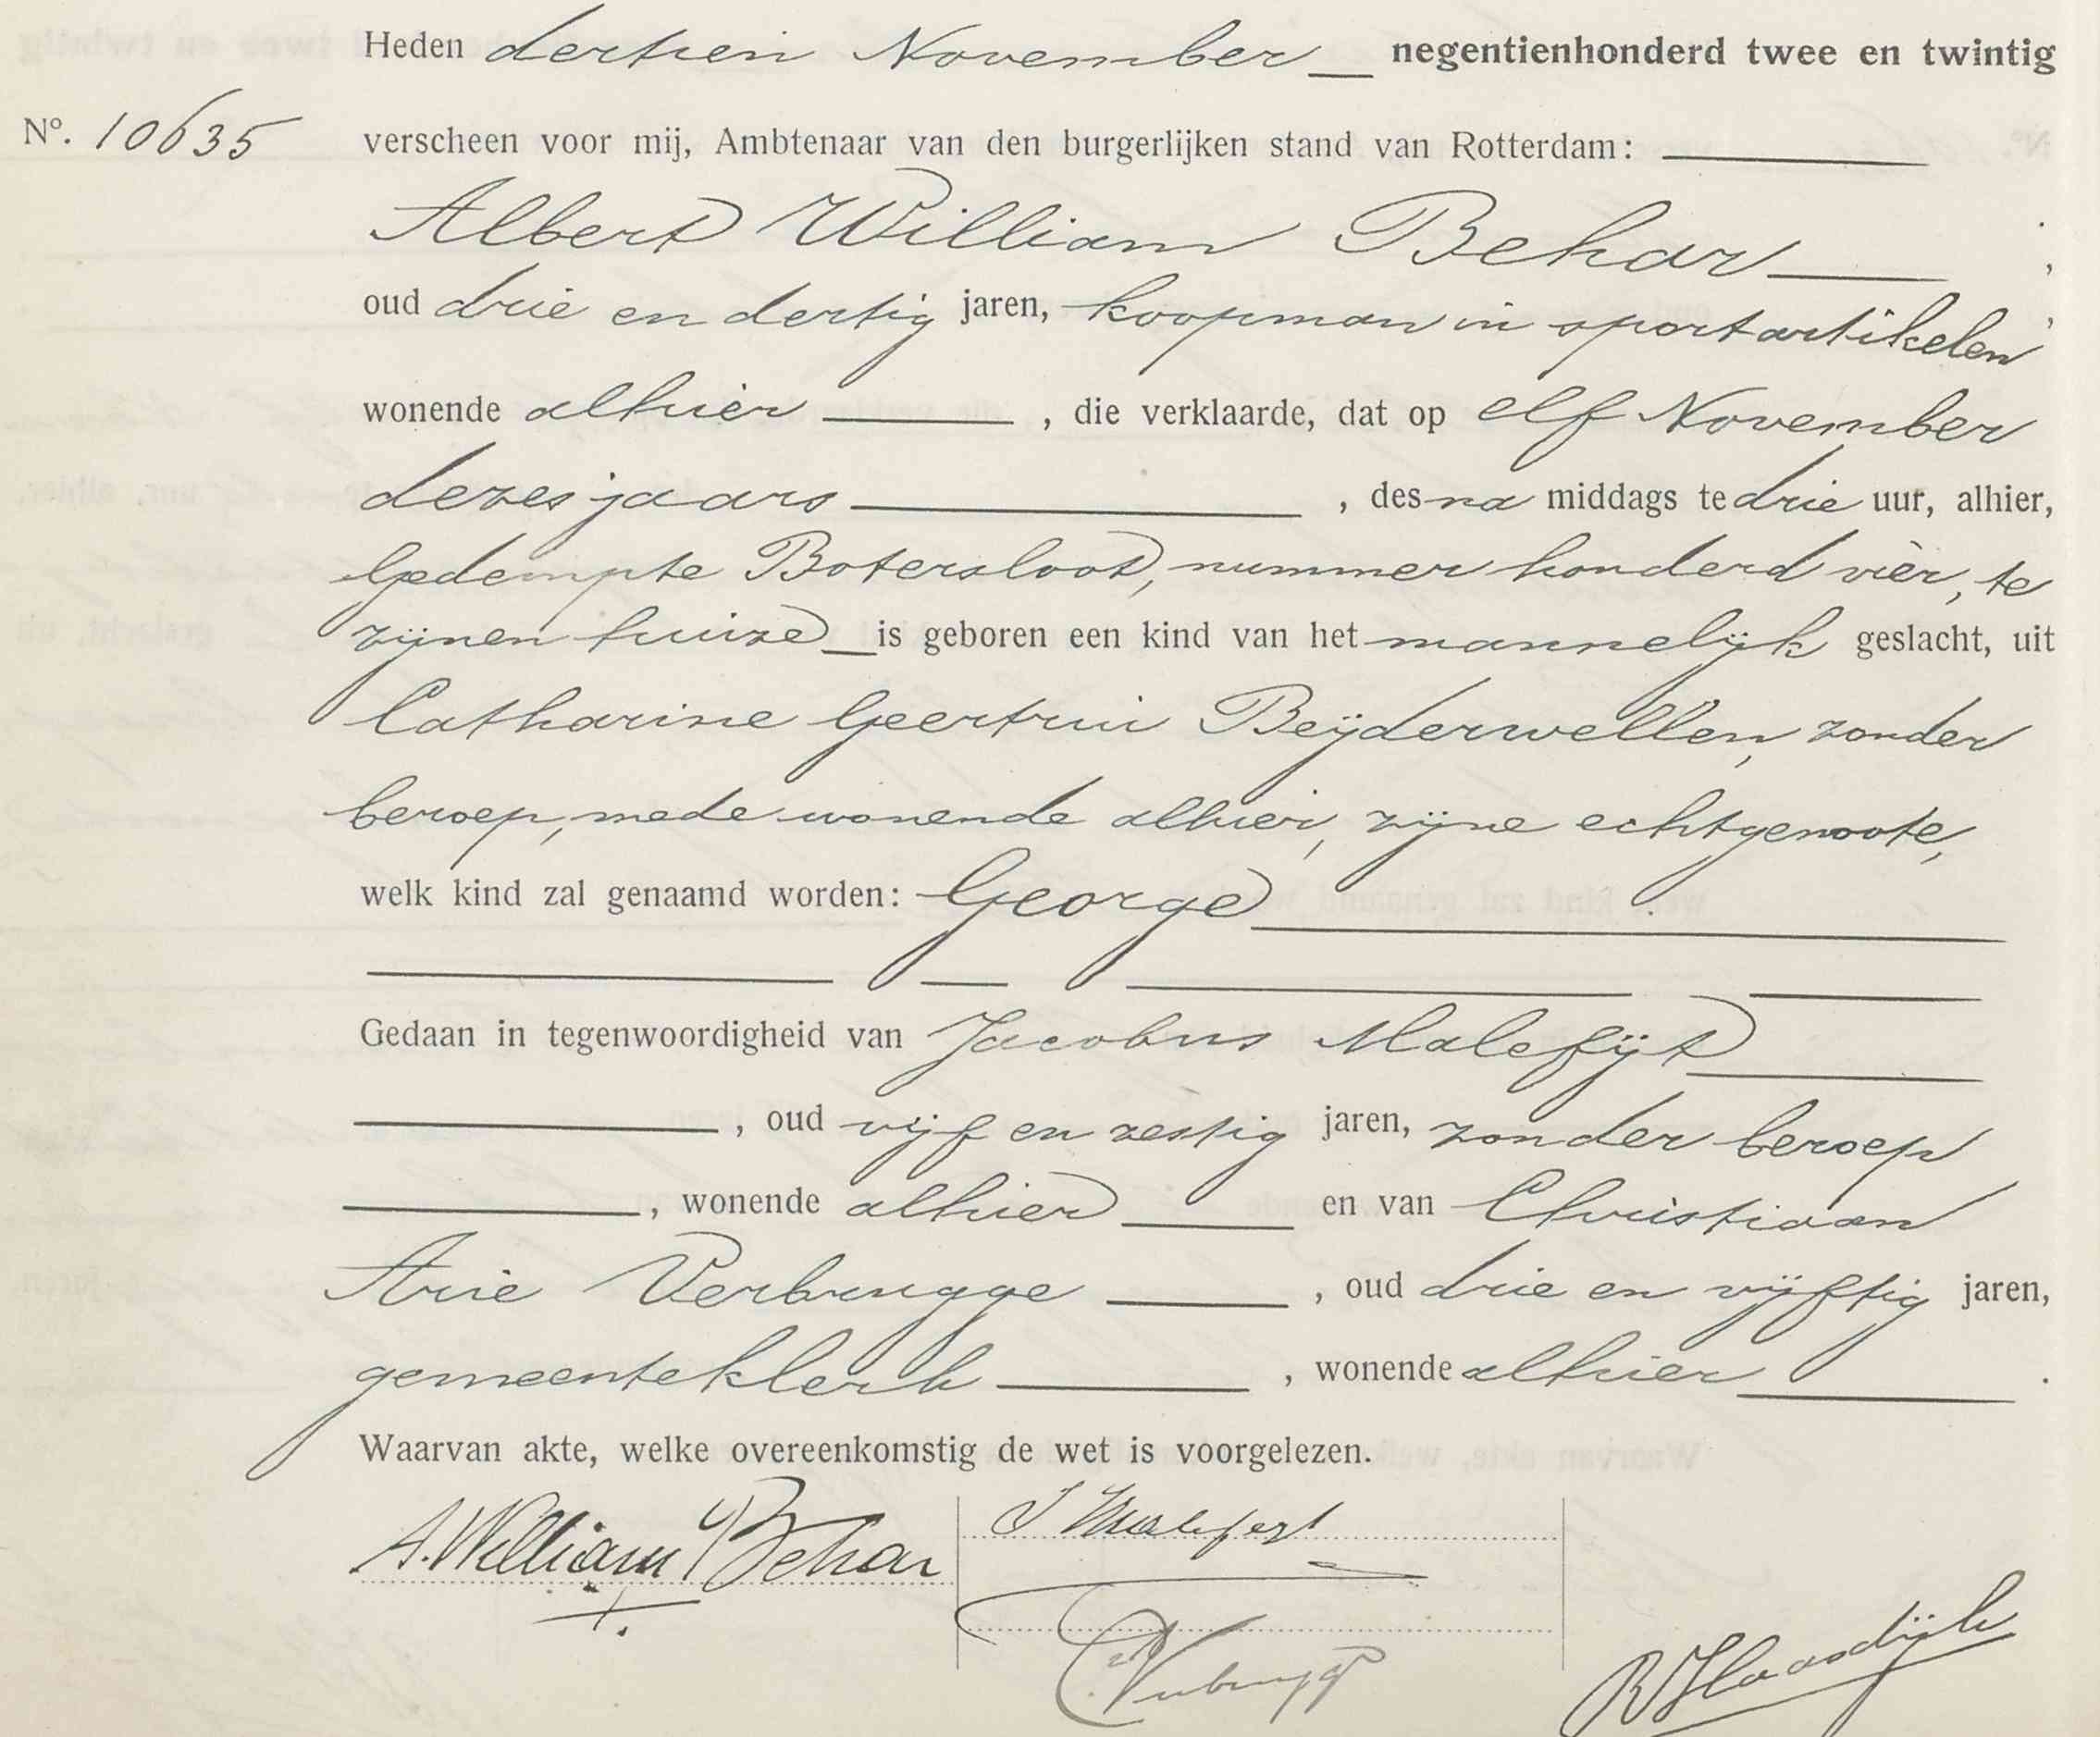 Heden dertien November negentienhonderd twee en twintig
No. 10635 verscheen voor mij, Ambtenaar van den burgerlijken stand van Rotterdam:
Albert William Behar
oud drie en dertig jaren, koopman in sportartikelen
wonende alhier, die verklaarde, dat op elf November
dezes jaars, des na middags te drie uur, alhier,
Gedempte Botersloot, nummer honderd vier, te
zijnen huize is geboren een kind van het mannelijk geslacht, uit
Catharine Geertrui Beijderwellen, zonder
beroep, mede wonende alhier, zijne echtgenoote,
welk kind zal genaamd worden: George
Gedaan in tegenwoordigheid van Jacobus Malefijt
, oud vijf en zestig jaren, zonder beroep
, wonende alhier en van Christiaan
Arie Verbrugge, oud drie en vijftig jaren,
gemeenteklerk, wonende alhier.
Waarvan akte, welke overeenkomstig de wet is voorgelezen.
A. William Behar
J Malefijt